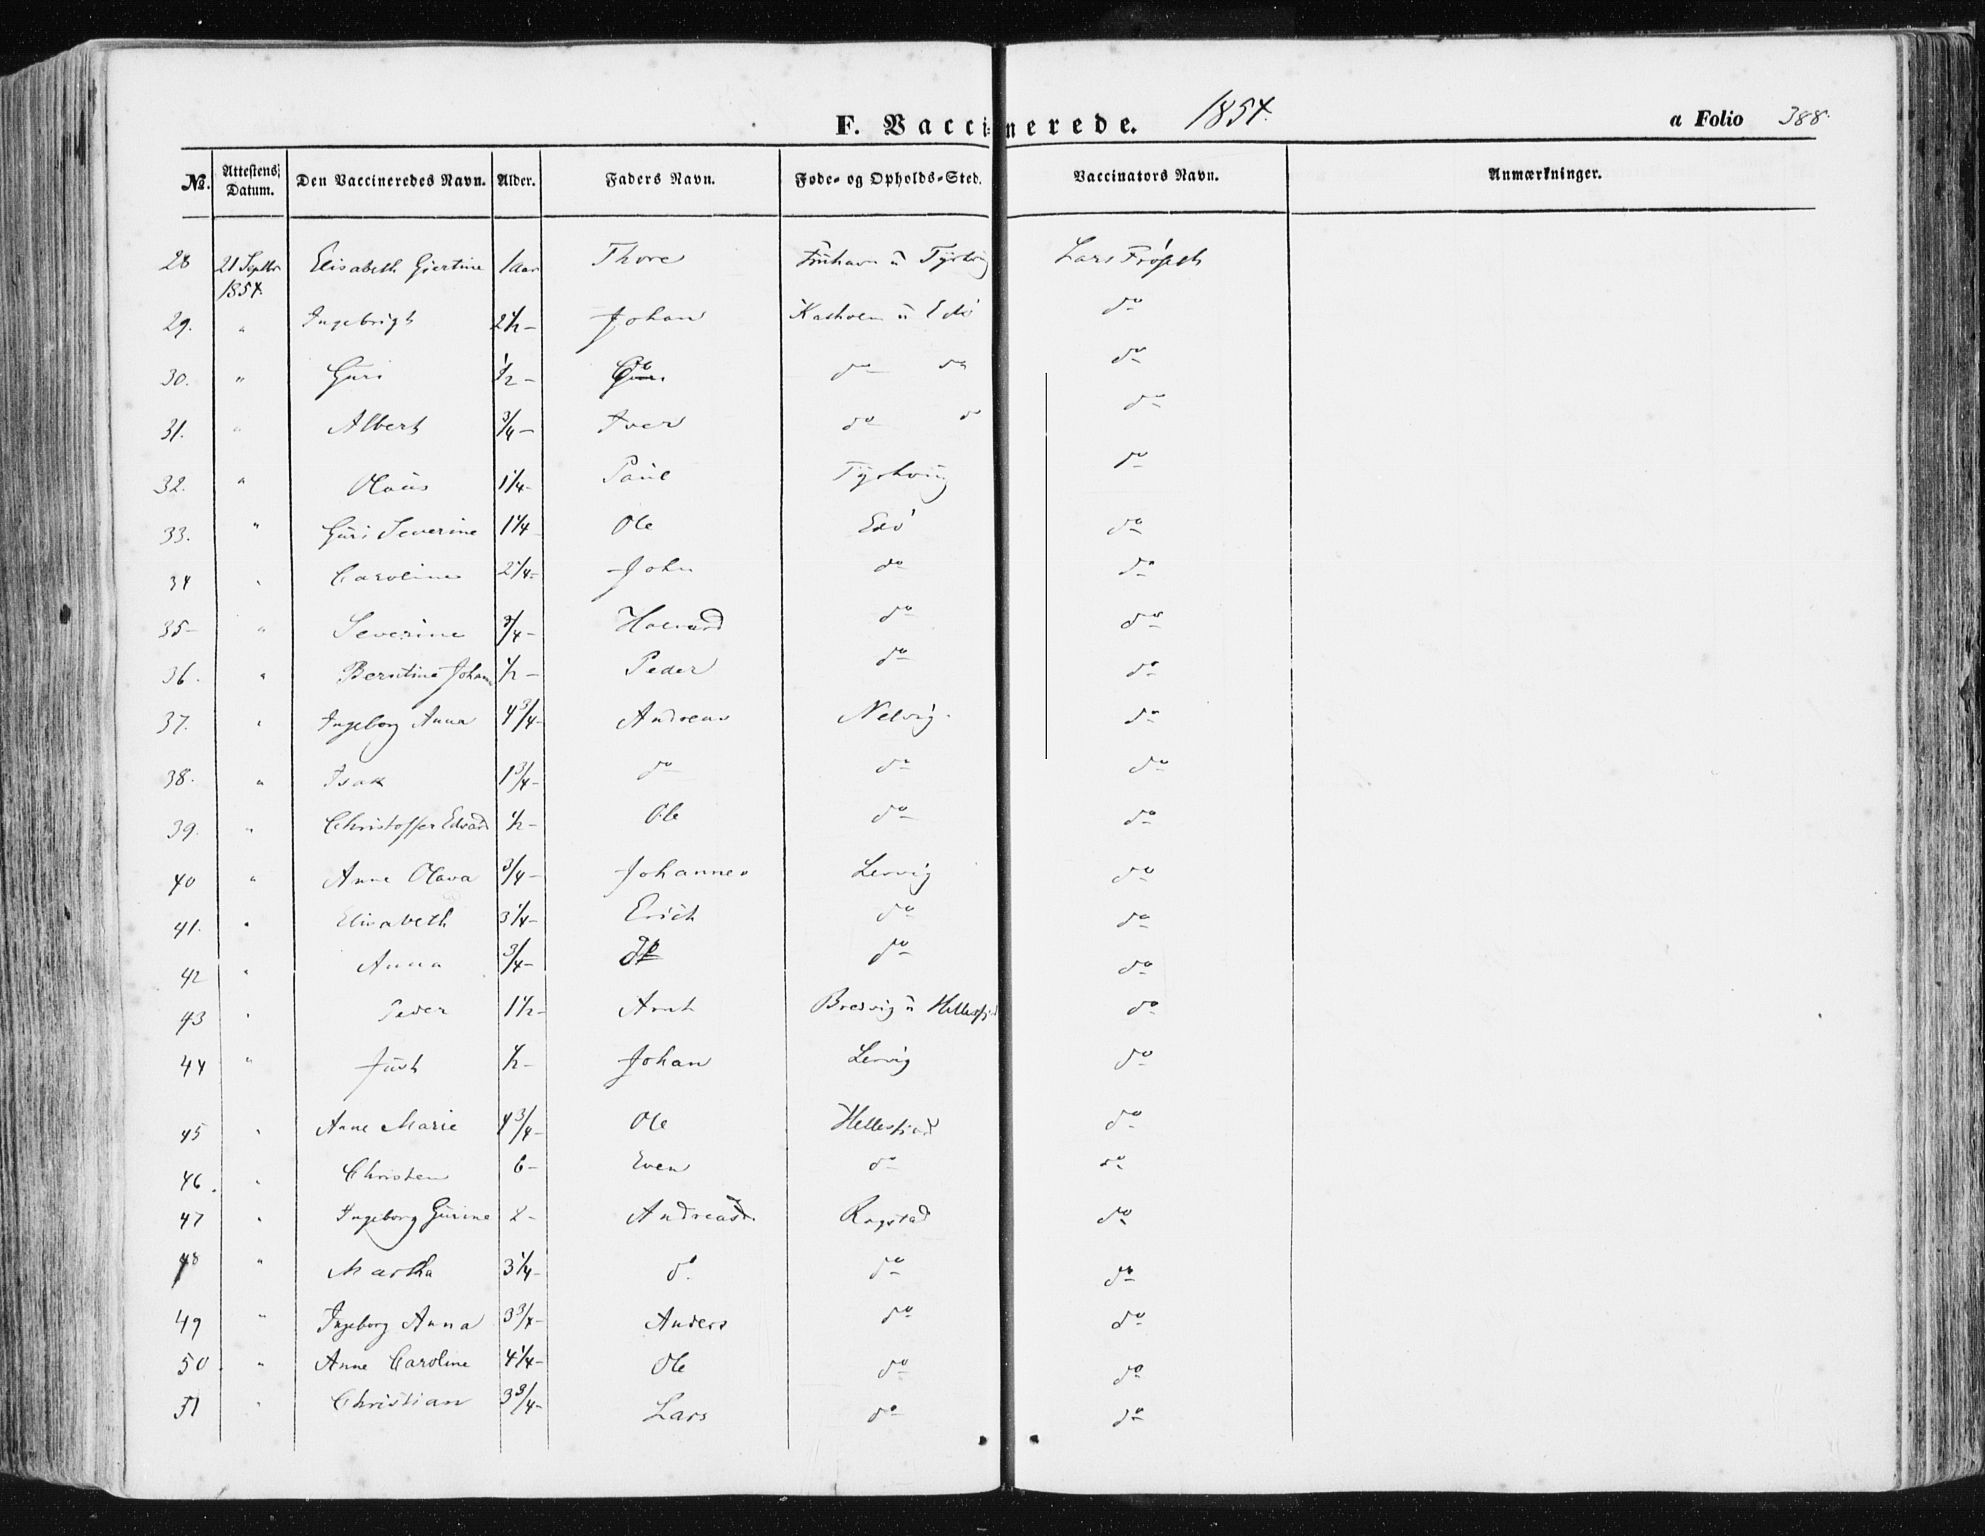 F. Vaccinerede. 1854. a Folio 388.
No. Attestens Datum. Den Vaccineredes Navn. Alder. Faders Navn. Føde- og Opholds-Sted. Vaccinators Navn. Anmærkninger.
28 21 Septbr 1854. Elisabeth Giertine 1 aar Thore u Lars
29. " Ingebrigt 2 1/2 - Johan u Edö do
30. " Guri 1/2 - do do do do
31. " Albert 3/4 - Iver do do do
32. " Olaus 1 1/4 - Paul do
33. " Guri Severine 1 1/4 Ole Edö do
34 " Caroline 2 1/4 - John do do
35 - " Severine 3/4 - Halvard do do
36. " Berntine Johan 1/2 - Peder do do
37. " Ingeborg Anna 4 3/4 - Andreas Nelvig. do
38. " Isak 1 3/4 - do do do
39. " Christoffer Edvard 1/2 - Ole do do
40 " Anne Olava 3/4 - Johannes Lervig do
41. " Elisabeth 3 1/4 - Erich do do
42 " Anna 3/4 - do do do
43 " Peder 1 1/2 - Arnt Bredvig u do
44 " Just 1/2 - Johan Lervig do
45 " Anne Marie 4 3/4 - Ole do
46. " Christen 6 - Even do do
47 " Ingeborg Gurine 2 - Andreas Rogstad do
48 " Martha 3 1/4 - do. do do
49 " Ingeborg Anna 3 3/4 - Anders do do
50. " Anne Caroline 4 1/4 - Ole do do
51 " Christian 3 3/4 - Lars do do